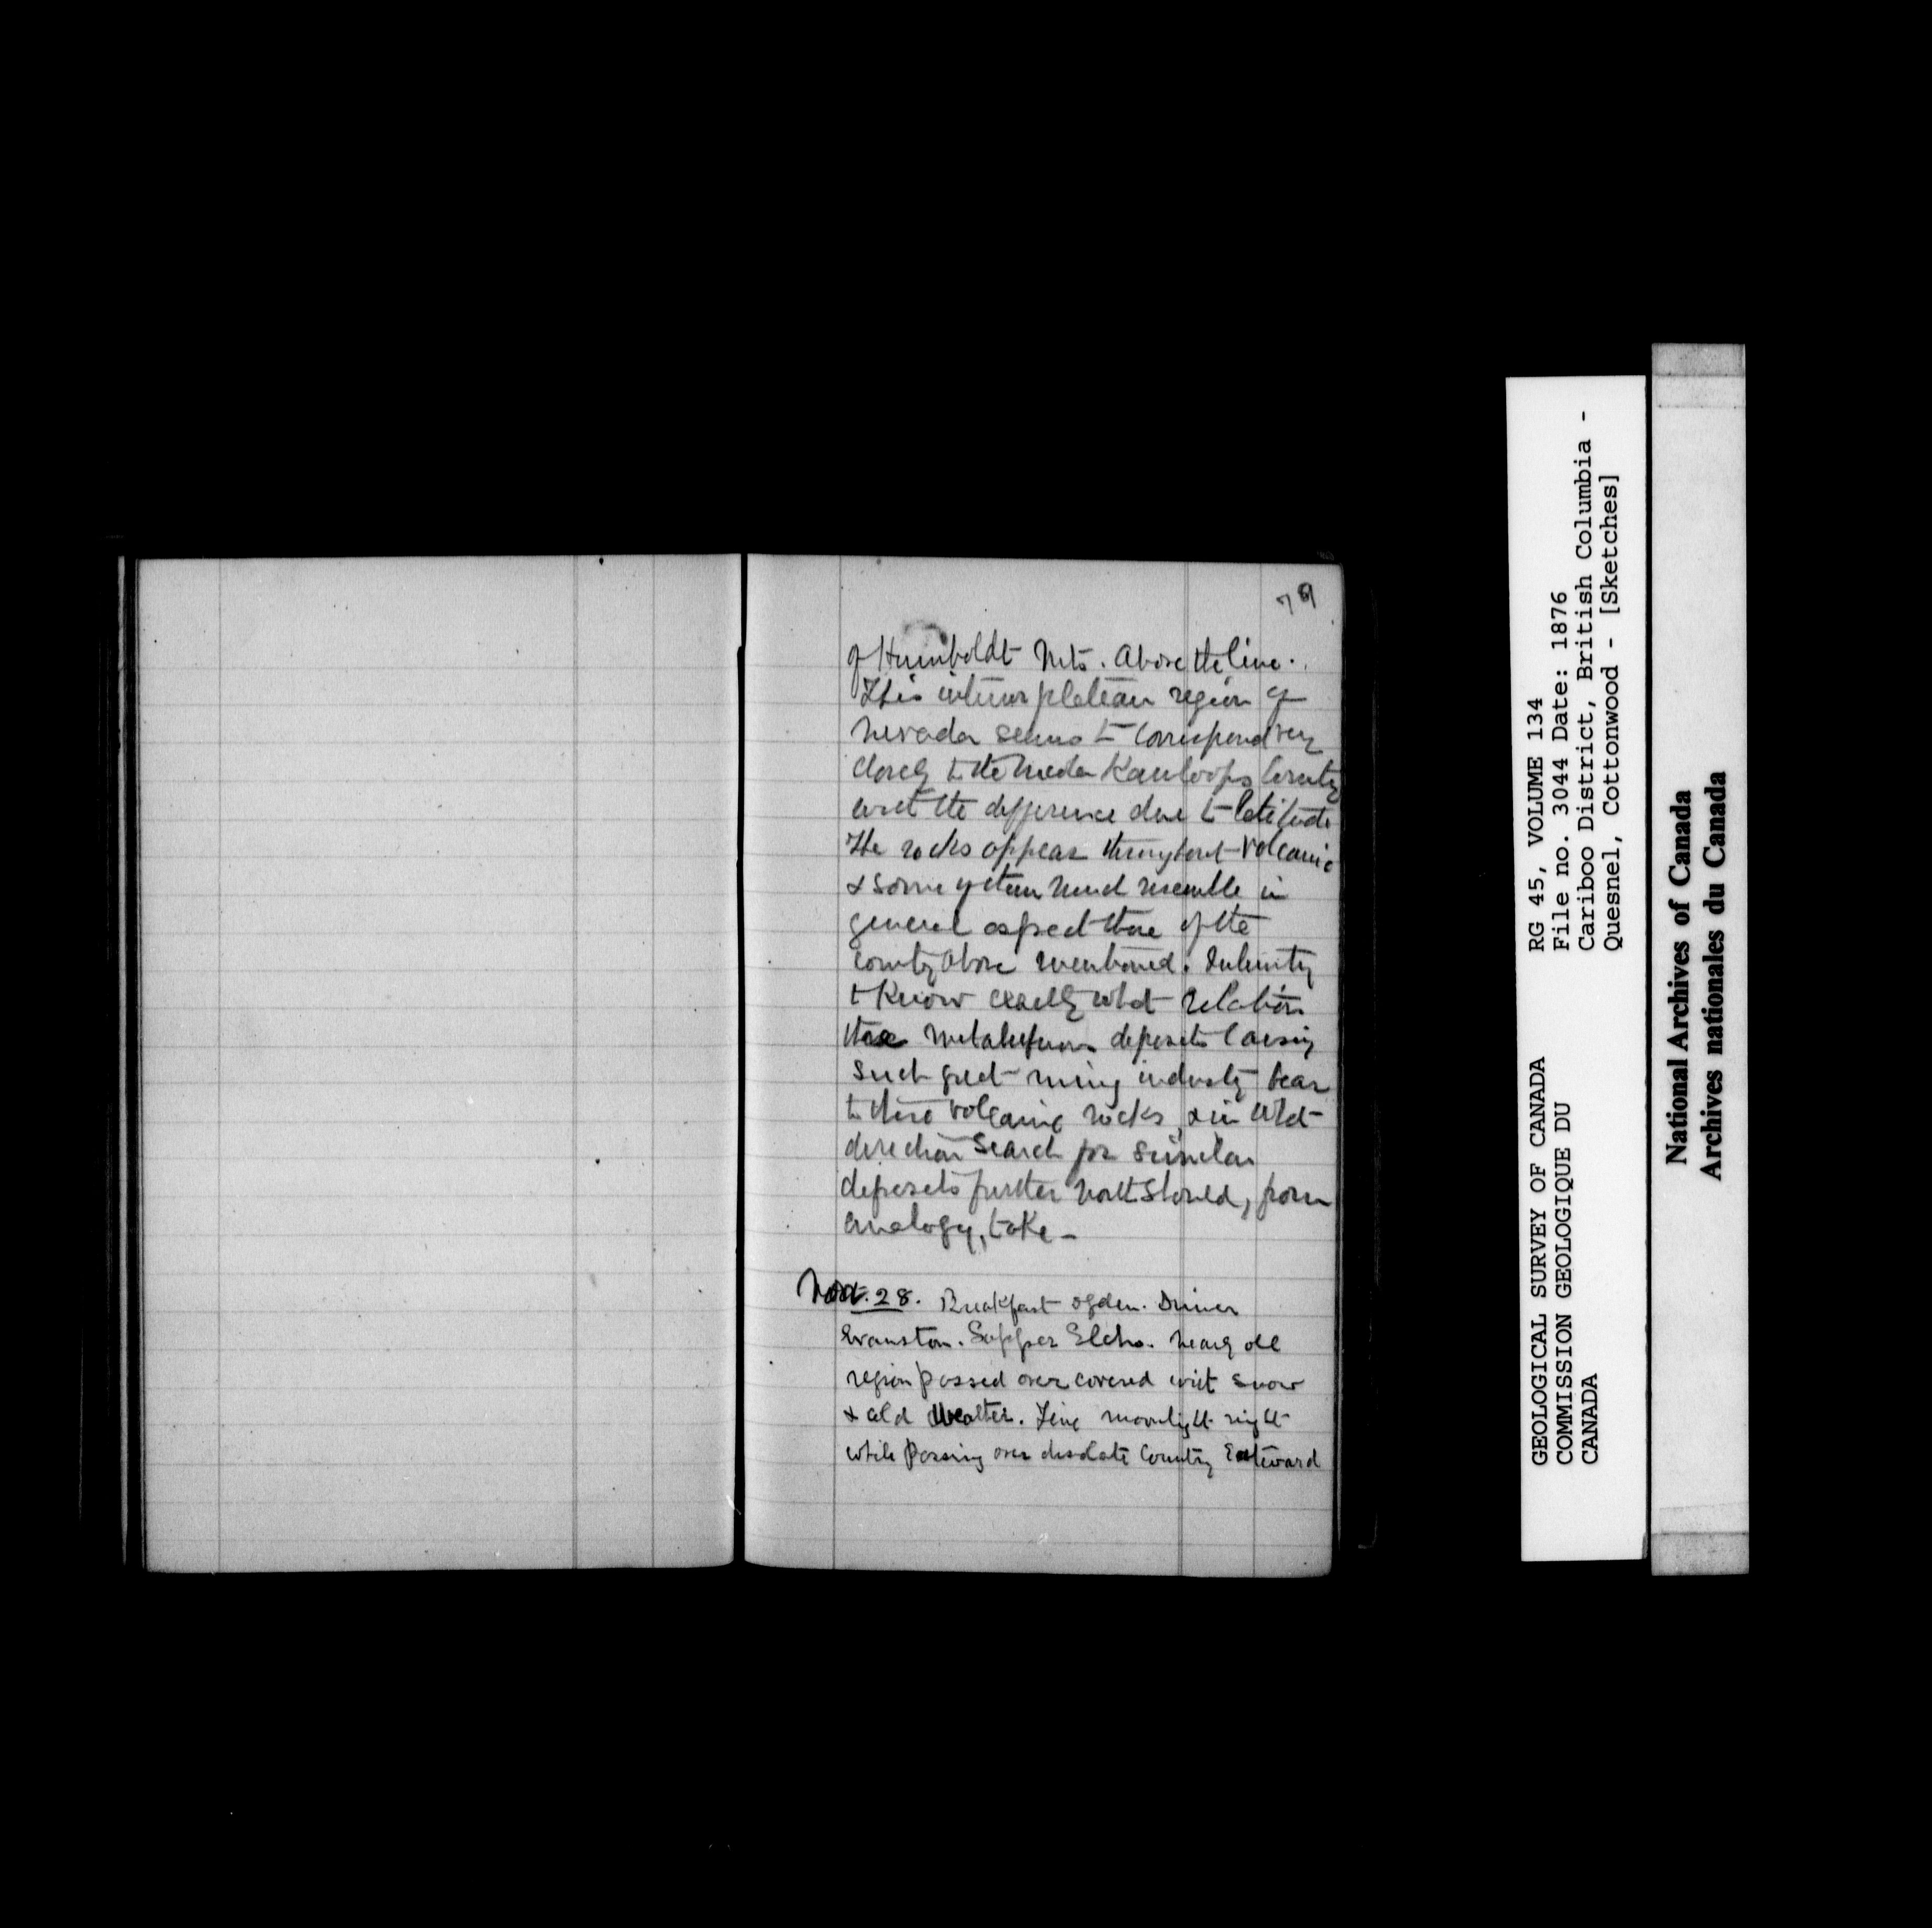 79
of Humboldt Mts. Above the line.
This interior plateau region of
Nevada seems to correspond very
closely to the Kamloops Country
with the difference due to latitude
The rocks appear throughout Volcanic
& some of them much resemble in
general aspect those of the
country above mentioned. Interesting
to Know exactly what relation
these metaliferous deposits causing
such great mining industry bear
to these volcanic rocks, & in what
direction search for similar
deposits further north should, from
analogy, take –
Nov. 28. Breakfast Ogden. Dinner
Evanston. Supper Nearly all
region passed over covered with snow
& cold weather. Fine moonlight night
while passing over desolate country Eastward
GEOLOGICAL SURVEY OF CANADA
COMMISSION GEOLOGIQUE DU
CANADA
RG 45, VOLUME 134
File no. 3044 Date: 1876
Cariboo District, British Columbia -
Quesnel, Cottonwood - [Sketches]
National Archives of Canada
Archives nationales du Canada